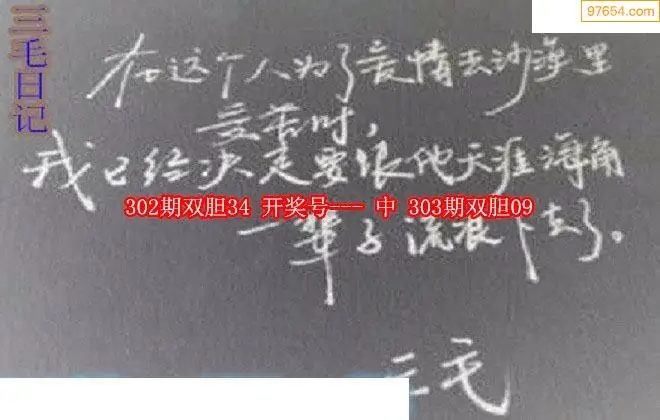 97654.com
三毛日记
在这个人为了爱情去沙漠里
受苦时，
我已经决定要跟他天涯海角
302期双胆34 开奖号--- 中 303期双胆09
一辈子流浪下去了。
三毛